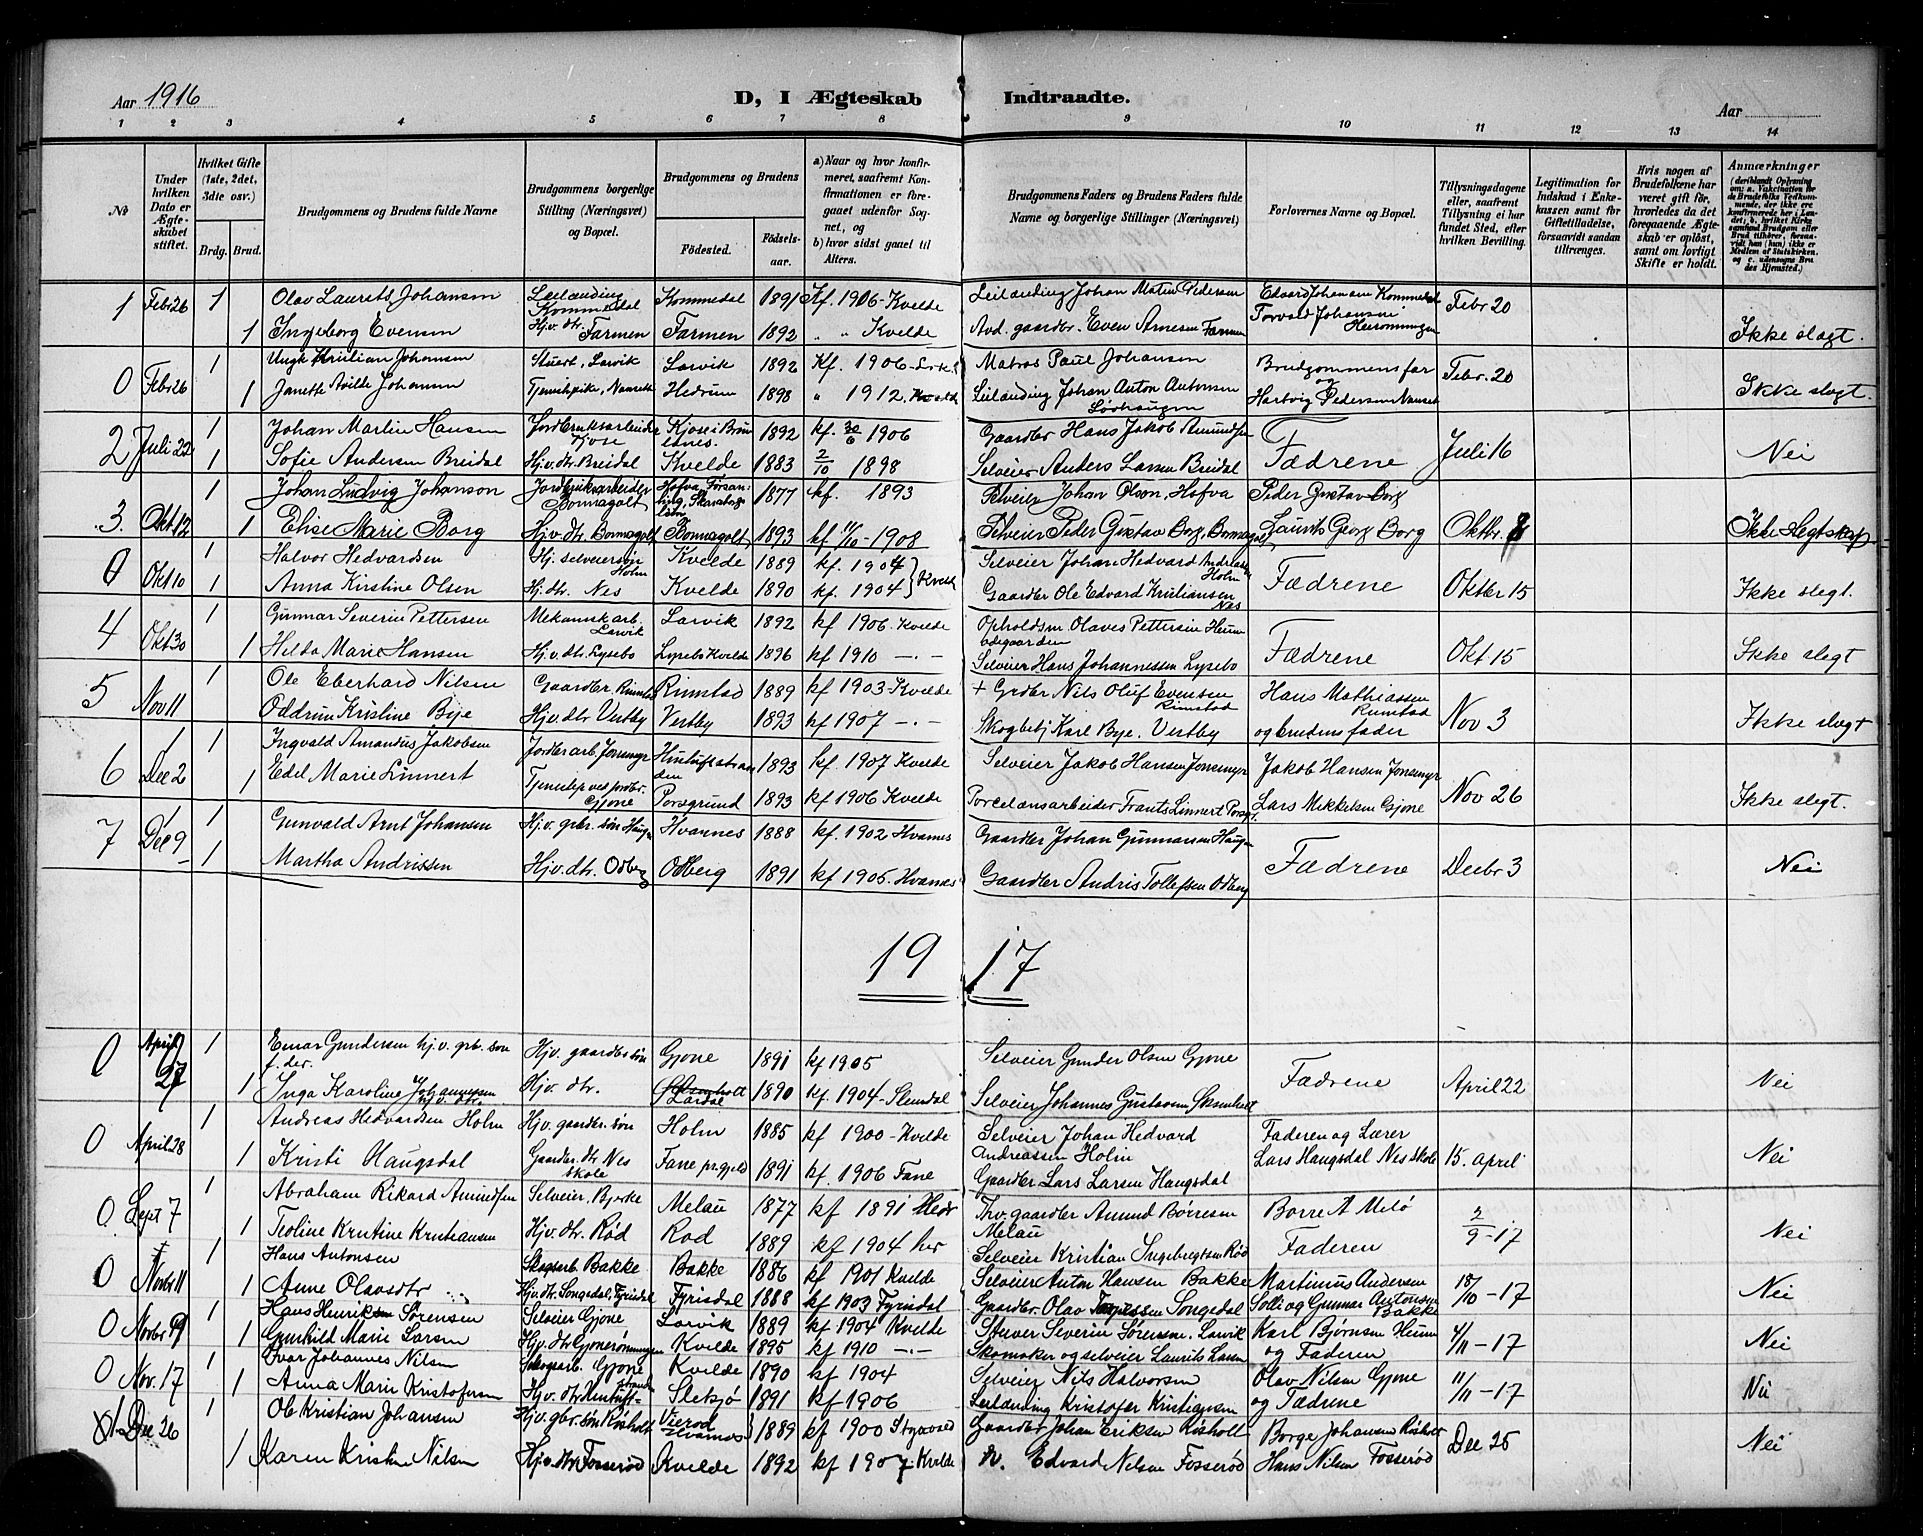 Aar 1916
D, I Ægteskab Indtraadte.
Aar
1 2 3 4 5 6 7 8 9 10 11 12 13 14
No
Under hvilken Dato er Ægteskabet stiftet.
Hvilket Gifte (1ste, 2det, 3die osv.)
Brdg. Brud.
Brudgommens og Brudens fulde Navne
Brudgommens borgerlige Stilling (Næringsvei) og Bopæl.
Brudgommens og Brudens
Fødested.
Fødselsaar.
a) Naar og hvor konfirmeret, saafremt Konfirmationen er foregaaet udenfor Sognet, og
b) hvor sidst gaaet til Alters.
Brudgommens Faders og Brudens Faders fulde Navne og borgerlige Stillinger (Næringsvei)
Forlovernes Navne og Bopæl.
Tillysningsdagene eller, saafremt Tillysning ei har fundet Sted, efter hvilken Bevilling.
Legitimation for Indskud i Enkekassen samt for Giftetilladelse, forsaavidt saadan tiltrænges.
Hvis nogen af Brudefolkene har været gift før, hvorledes da det foregaaende Ægteskab er opløst, samt om lovligt Skifte er holdt.
Anmærkninger
(deriblandt Oplysning om: a. Vakcination for de Brudefolks Vedkommende, der ikke ere konfirmerede her i Landet; b. hvilket Kirkesamfund Brudgom eller Brud tilhører, forsaavidt han (hun) ikke er Medlem af Statskirken, og c. udensogns Brudes Hjemsted.)
1 Febr 26 1 Olav Laurits Johansen Leilænding Kommedal Kommedal 1891 Kf. 1906 - Kvelde Leilænding Johan Martin Pedersen Edvard Johansen Kommedal Febr 20
1 Ingeborg Evensen Hjv. dtr. Farmen Farmen 1892 " " Kvelde Avd. gaardbr. Even Arnesen Farmen Torvald Johansen Ikke slegt.
0 Febr 26 1 Ungk Kristian Johansen Stuert, Larvik Larvik 1892 Kf. 1906 - Matros Paul Johansen Brudgommens far og Febr. 20
1 Janette Johansen Tjenestepike, Nanset Hedrum 1898 " 1912. Kvelde Leilænding Johan Anton Antonsen Hartvig Pedersen Nanset Ikke slegt.
2 Juli 22 1 Johan Martin Hansen Jordbruksarbeider Kjose Kjose i Brunlanes. 1892 kf. 30/6 1906 Gaardbr Hans Jakob Amundsen Fædrene Juli 16
1 Sofie Andersen Breidal Hjv. dtr. Breidal Kvelde 1883 2/10 1898 Selveier Anders Larsen Breidal Nei
3. Okt 12 1 Johan Ludvig Johanson Jordbruksarbeider Bommagolt Hofva 1877 kf. 1893 Selveier Johan Olson, Hofva Peder Gustav Borg
1 Elise Marie Borg Hjv. dtr. Bommagolt Bommagolt 1893 kf 11/10 - 1908 Selveier Peder Gustav Borg, Bommagolt Laurits Georg Borg Oktbr. 8 Ikke slegtskap
0 Okt 10 1 Halvor Hedvardsen Hj. selveiersøn Holm Kvelde 1889 kf. 1904 Kvelde Selveier Johan Hedvard Andreassen Holm Fædrene Oktbr 15
1 Anna Kirstine Olsen Hj. dtr. Nes Kvelde 1890 kf. 1904 Gaardbr Ole Edvard Kristiansen Nes Ikke slegt.
4 Okt 30 Gunnar Severin Pettersen Mekanik arb. Larvik Larvik 1892 kf 1906. Kvelde Opholdsm Olaves Pettersen Heum Fædrene Okt 15
1 Helda Marie Hansen Hj. v. dtr. Lysebo Lysebo Kvelde 1896 kf 1910 - . - Selveier Hans Johannessen Lysebo Ikke slegt
5 Nov 11 1 Ole Eberhard Nilsen Gaardbr. Rimstad Rimstad 1889 kf 1903 - Kvelde + Grdbr Nils Oluf Evensen Rimstad Hans Mathiassen Rimstad Nov 3
Oddrun Kristine Bye Hjv. dtr Vestby Vestby 1893 kf 1907 - . - Skogbetj Karl Bye. Vestby og brudens fader Ikke slegt
6 Dec 2 1 Ingvald Amandus Jakobsen Jordbr arb. Jonsmyr 1893 kf. 1907 Kvelde Selveier Jakob Hansen Jonsmyr Jakob Hansen Jonsmyr Nov 26
1 Edel Marie Linnert Gjone Porsgrund 1893 kf 1906 Kvelde Porcelænsarbeider Frants Linnert Porsgr. Lars Mikkelsen Gjone Ikke slegt.
7 Dec 9 1 Gunvald Arnt Johansen Hj. v. gbr. søn Haugen Hvarnes 1888 kf. 1902 Hvarnes Gaardbr Johan Gunnarsen Haugen Fædrene Decbr 3
1 Martha Andrissen Hj. v. dtr. Odberg Odberg 1891 kf 1905. Hvarnes Gaardbr Andris Tollefsen Odberg Nei
19 17
0 April 27 1 Einar Gundersen hj. v. gbr. søn Hjv. gaardbr søn Gjone 1891 kf 1905 Selveier Gunder Olsen Gjone Fædrene April 22
1 Inga Karoline Johannessen Hjv. dtr. Lardal 1890 kf. 1904 - Slemdal Selveier Johannes Gustavsen Nei
0 April 28 1 Andreas Hedvardsen Holm Hjv. gaardbr. søn Holm 1885 kf 1900 - Kvelde Selveier Johan Hedvard Andreassen Holm Faderen og Lærer
1 Kristi Haugsdal Gaardbr. dtr Nes skole Fane pr.gjeld 1891 kf. 1906 Fane Gaardbr Lars Larsen Haugsdal Lars Haugsdal Nes skole 15. april Nei
0. Sept 7 1 Abraham Rikard Amundsen Selveier, Bjerke Melau 1877 kf 1891 Hedr Fhv. gaardbr Amund Børresen Melau Borre A Melø 2/9 - 17
1 Teoline Kristine Kristiansen Hjv. dtr. Rød Rød 1889 kf 1904 her Selveier Kristian Ingebregtsen Rød Faderen Nei
0 Novbr 11 1 Hans Antonsen Skogsarb. Bakke Bakke 1886 kf 1901 Kvelde Selveier Anton Hansen Bakke Martinius Andersen 18/10 - 17
1 Anne Olavsdtr Hjv. dtr. Songedal, Fyrisdal Fyrisdal 1888 kf 1903 Fyrisdal Gaardbr. Olav Songedal Solli og Gunnar Antonsen Bakke Nei
0 Novbr 19 1 Hans Henrik Sørensen Selveier Gjone Larvik 1889 kf 1904 Kvelde Severin Sørensen. Larvik Karl Bjørnsen Heum 4/11 - 17
1 Gunhild Marie Larsen Hjv. dtr Gjonerønningen Kvelde 1895 kf 1910 - . - Skomaker og selveier Laurits Larsen og Faderen Nei
0 Nov. 17 1 Ivar Johannes Nilsen Skogsarb. Gjone Kvelde 1890 kf 1904 Selveier Nils Halvorsen Olav Nilsen Gjone 11/11 - 17
1 Anna Marie Kristofersen Hjv. dtr Sletsjø 1891 kf 1906 Leilænding Kristofer Kristiansen og Fædrene Nei
1 Dec 26 1 Ole Kristian Johansen Hjv. gbr. søn Risholt Vierød Hvarnes 1889 kf 1900 Styrvoll Gaardbr Johan Eriksen Risholt Borge Johansen Risholt Dec 25
1 Karen Kristine Nilsen Hj. v. dtr Fosserød Kvelde 1892 kf 1907. Kvelde n. Edvard Nilsen Fosserød Hans Nilsen Fosserød Nei